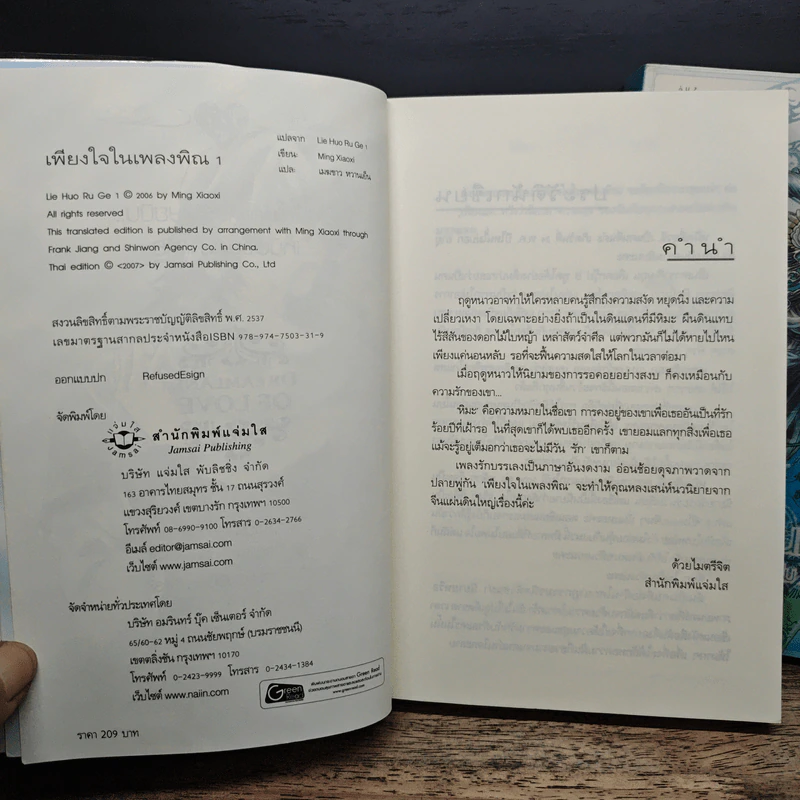 เพียงใจในเพลงพิณ 1
แปลจาก Lie Huo Ru Ge 1
เขียน: Ming Xiaoxi
แปล: เมฆขาว หวานเย็น
Lie Huo Ru Ge 1 © 2006 by Ming Xiaoxi
All rights reserved
This translated edition is published by arrangement with Ming Xiaoxi through
Frank Jiang and Shinwon Agency Co. in China.
Thai edition © <2007> by Jamsai Publishing Co., Ltd
สงวนลิขสิทธิ์ตามพระราชบัญญัติลิขสิทธิ์ พ.ศ. 2537
เลขมาตรฐานสากลประจำหนังสือISBN 978-974-7503-31-9
ออกแบบปก RefusedEsign
จัดพิมพ์โดย
แจ่มใส
Jamsai
สำนักพิมพ์แจ่มใส
Jamsai Publishing
บริษัท แจ่มใส พับลิชชิ่ง จำกัด
163 อาคารไทยสมุทร ชั้น 17 ถนนสุรวงศ์
แขวงสุริยวงศ์ เขตบางรัก กรุงเทพฯ 10500
โทรศัพท์ 08-6990-9100 โทรสาร 0-2634-2766
อีเมล์ editor@jamsai.com
เว็บไซต์ www.jamsai.com
จัดจำหน่ายทั่วประเทศโดย
บริษัท อมรินทร์ บุ๊ค เซ็นเตอร์ จำกัด
65/60-62 หมู่ 4 ถนนชัยพฤกษ์ (บรมราชชนนี)
เขตตลิ่งชัน กรุงเทพฯ 10170
โทรศัพท์ 0-2423-9999 โทรสาร 0-2434-1384
เว็บไซต์ www.naiin.com
Green
Read
ราคา 209 บาท
คำนำ
ฤดูหนาวอาจทำให้ใครหลายคนรู้สึกถึงความสงัด หยุดนิ่ง และความ
เปลี่ยวเหงา โดยเฉพาะอย่างยิ่งถ้าเป็นในดินแดนที่มีหิมะ ผืนดินแทบ
ไร้สีสันของดอกไม้ใบหญ้า เหล่าสัตว์จำศีล แต่พวกมันก็ไม่ได้หายไปไหน
เพียงแค่นอนหลับ รอที่จะฟื้นความสดใสให้โลกในเวลาต่อมา
เมื่อฤดูหนาวให้นิยามของการรอคอยอย่างสงบ ก็คงเหมือนกับ
ความรักของเขา...
'หิมะ' คือความหมายในชื่อเขา การคงอยู่ของเขาเพื่อเธออันเป็นที่รัก
ร้อยปีที่เฝ้ารอ ในที่สุดเขาก็ได้พบเธออีกครั้ง เขายอมแลกทุกสิ่งเพื่อเธอ
แม้จะรู้อยู่เต็มอกว่าเธอจะไม่มีวัน 'รัก' เขาก็ตาม
เพลงรักบรรเลงเป็นภาษาอันงดงาม อ่อนช้อยดุจภาพวาดจาก
ปลายพู่กัน 'เพียงใจในเพลงพิณ' จะทำให้คุณหลงเสน่ห์นวนิยายจาก
จีนแผ่นดินใหญ่เรื่องนี้ค่ะ
ด้วยไมตรีจิต
สำนักพิมพ์แจ่มใส